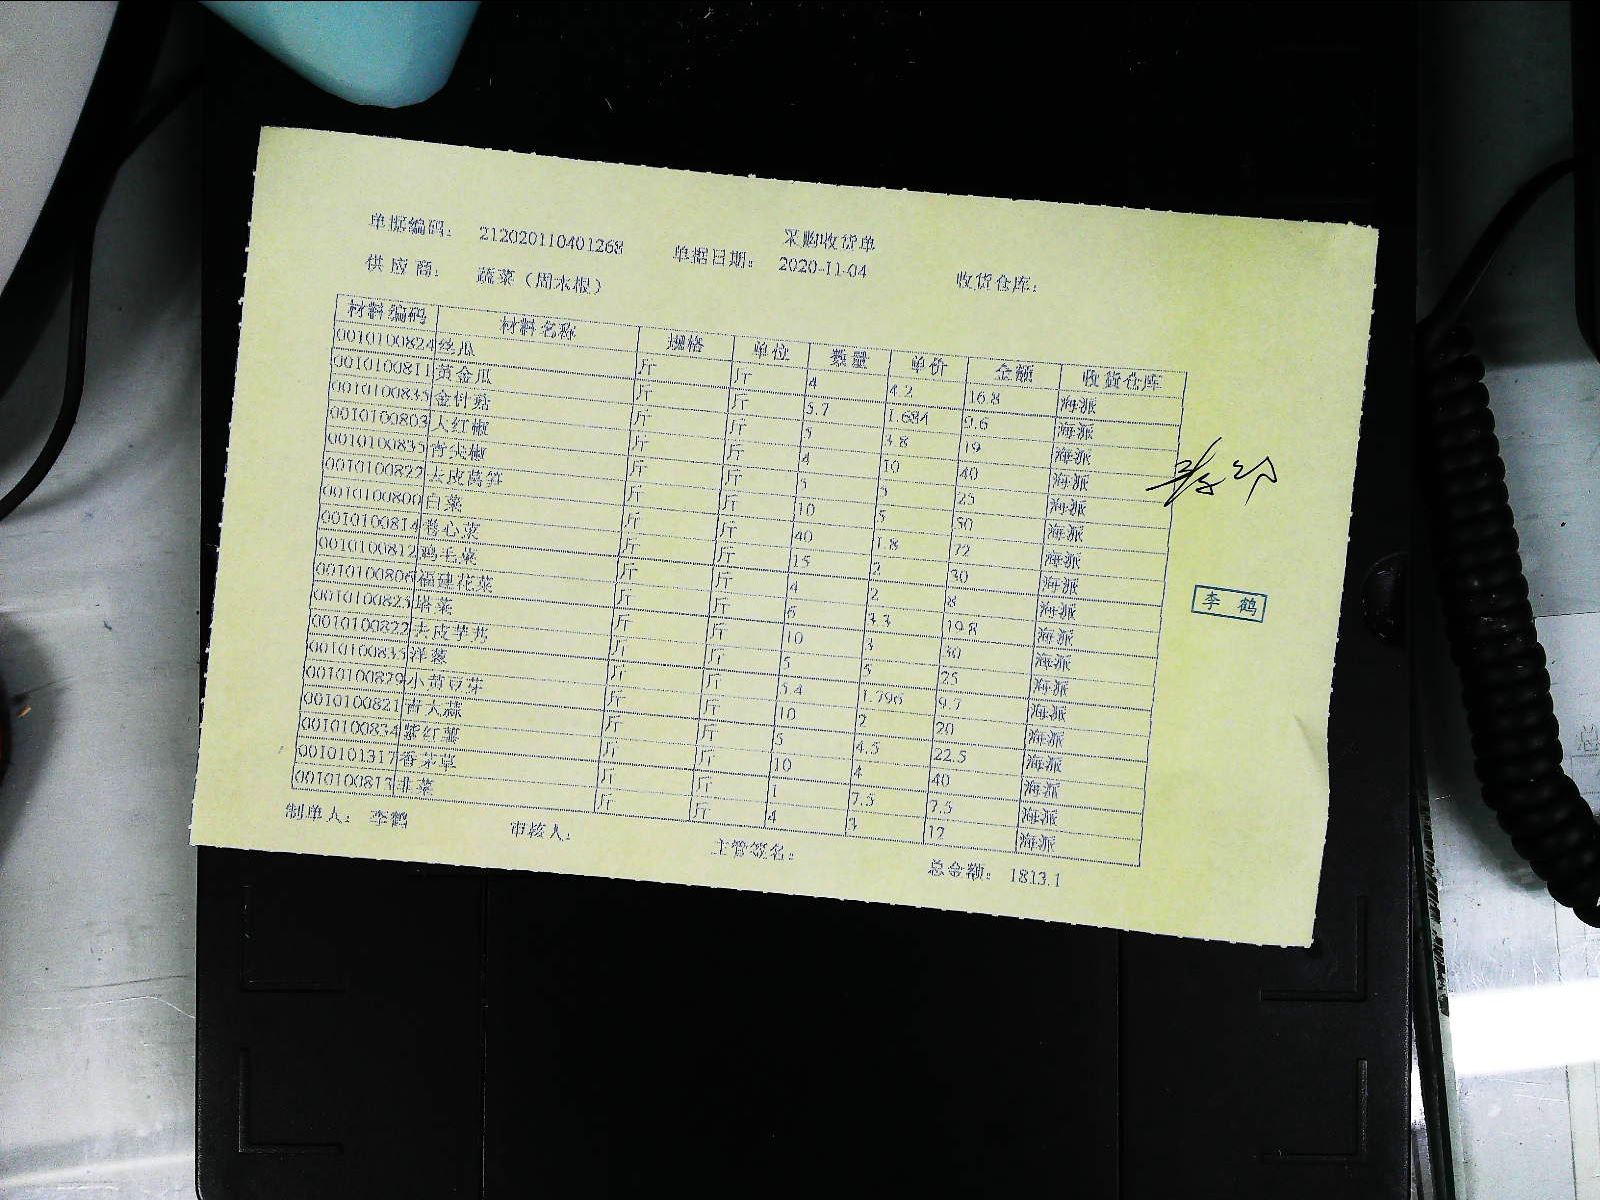 采购收货单
单据编码: 212020110401268 单据日期: 2020-11-04 收货仓库:
供应商: 蔬菜(周水根)
材料编码 材料名称 规格 单位 数量 单价 金额 收货仓库
0010100824 丝瓜 斤 斤 4 4.2 16.8 海派
0010100811 黄金瓜 斤 斤 5.7 1.684 9.6 海派
0010100835 金针菇 斤 斤 5 3.8 19 海派
0010100803 大红椒 斤 斤 4 10 40 海派
0010100835 青尖椒 斤 斤 5 5 25 海派
0010100822 去皮莴笋 斤 斤 10 5 50 海派
0010100800 白菜 斤 斤 40 1.8 72 海派
0010100814 卷心菜 斤 斤 15 2 30 海派
0010100812 鸡毛菜 斤 斤 4 2 8 海派
0010100806 福建花菜 斤 斤 6 3.3 19.8 海派
0010100823 塔菜 斤 斤 10 3 30 海派
0010100822 去皮芋艿 斤 斤 5 5 25 海派
0010100835 洋葱 斤 斤 5.4 1.796 9.7 海派
0010100829 小黄豆芽 斤 斤 10 2 20 海派
0010100821 青大蒜 斤 斤 5 4.5 22.5 海派
0010100834 紫红薯 斤 斤 10 4 40 海派
0010101317 香茅草 斤 斤 1 7.5 7.5 海派
0010100813 韭菜 斤 斤 4 3 12 海派
李鹤
制单人: 李鹤 审核人: 主管签名: 总金额: 1813.1